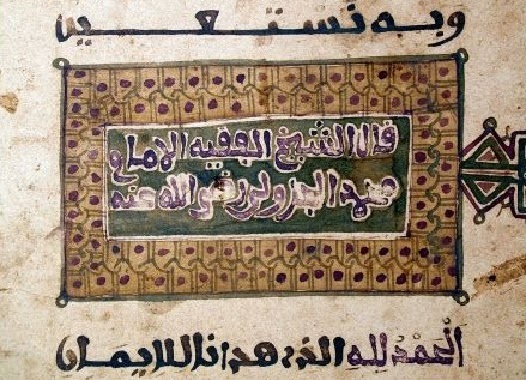 وبه نستعين
قال الشيخ الفقيه الامام
محمد الجزولي رضي الله عنه
الحمد لله الذي هدانا للايمان